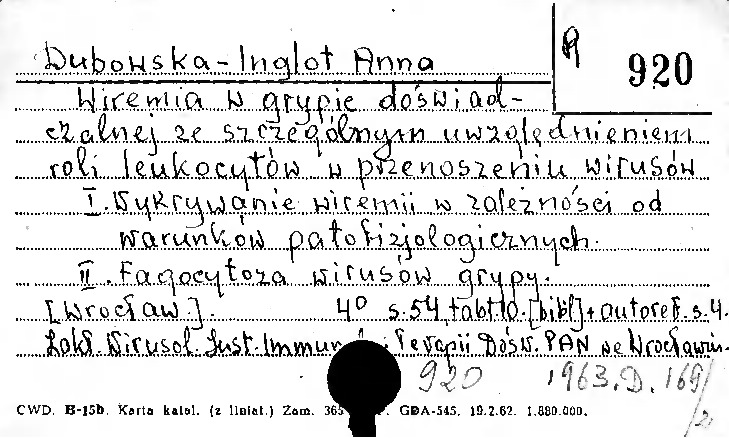 Dubowska-Inglot Anna
R 920
Wiremia w grypie doświad-
czalnej ze szczególnym uwzględnieniem
roli leukocytów w przenoszeniu wirusów
I. Wykrywanie wiremii w zależności od
warunków patofizjologicznych.
II. Fagocytoza wirusów grypy.
[Wrocław]. 4° s. 54, tabl. 10. [bibl] + autoref. s. 4.
Zakł. Wirusol. Inst. Immun. Terapii Dośw. PAN we Wrocławiu.
920 1963.D.169/2
CWD. B-15b. Karta katal. (z liniat.) Zam. 365 GDA-545. 19.2.62. 1.880.000.